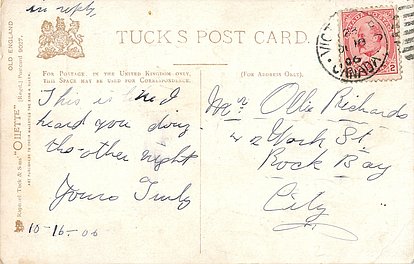 in reply
TUCK'S POST CARD.
FOR POSTAGE IN THE UNITED KINGDOM ONLY,
THIS SPACE MAY BE USED FOR CORRESPONDENCE
(FOR ADDRESS ONLY.)
OLD ENGLAND
"OILETTE" [Regd.] Postcard 9007.
Raphael Tuck & Sons'
This is how I
heard you doing
the other night
Yours Truly
10-16-06
Mr Ollie Richards
42 York St
Rock Bay
City
VIC
16
06
CANADA